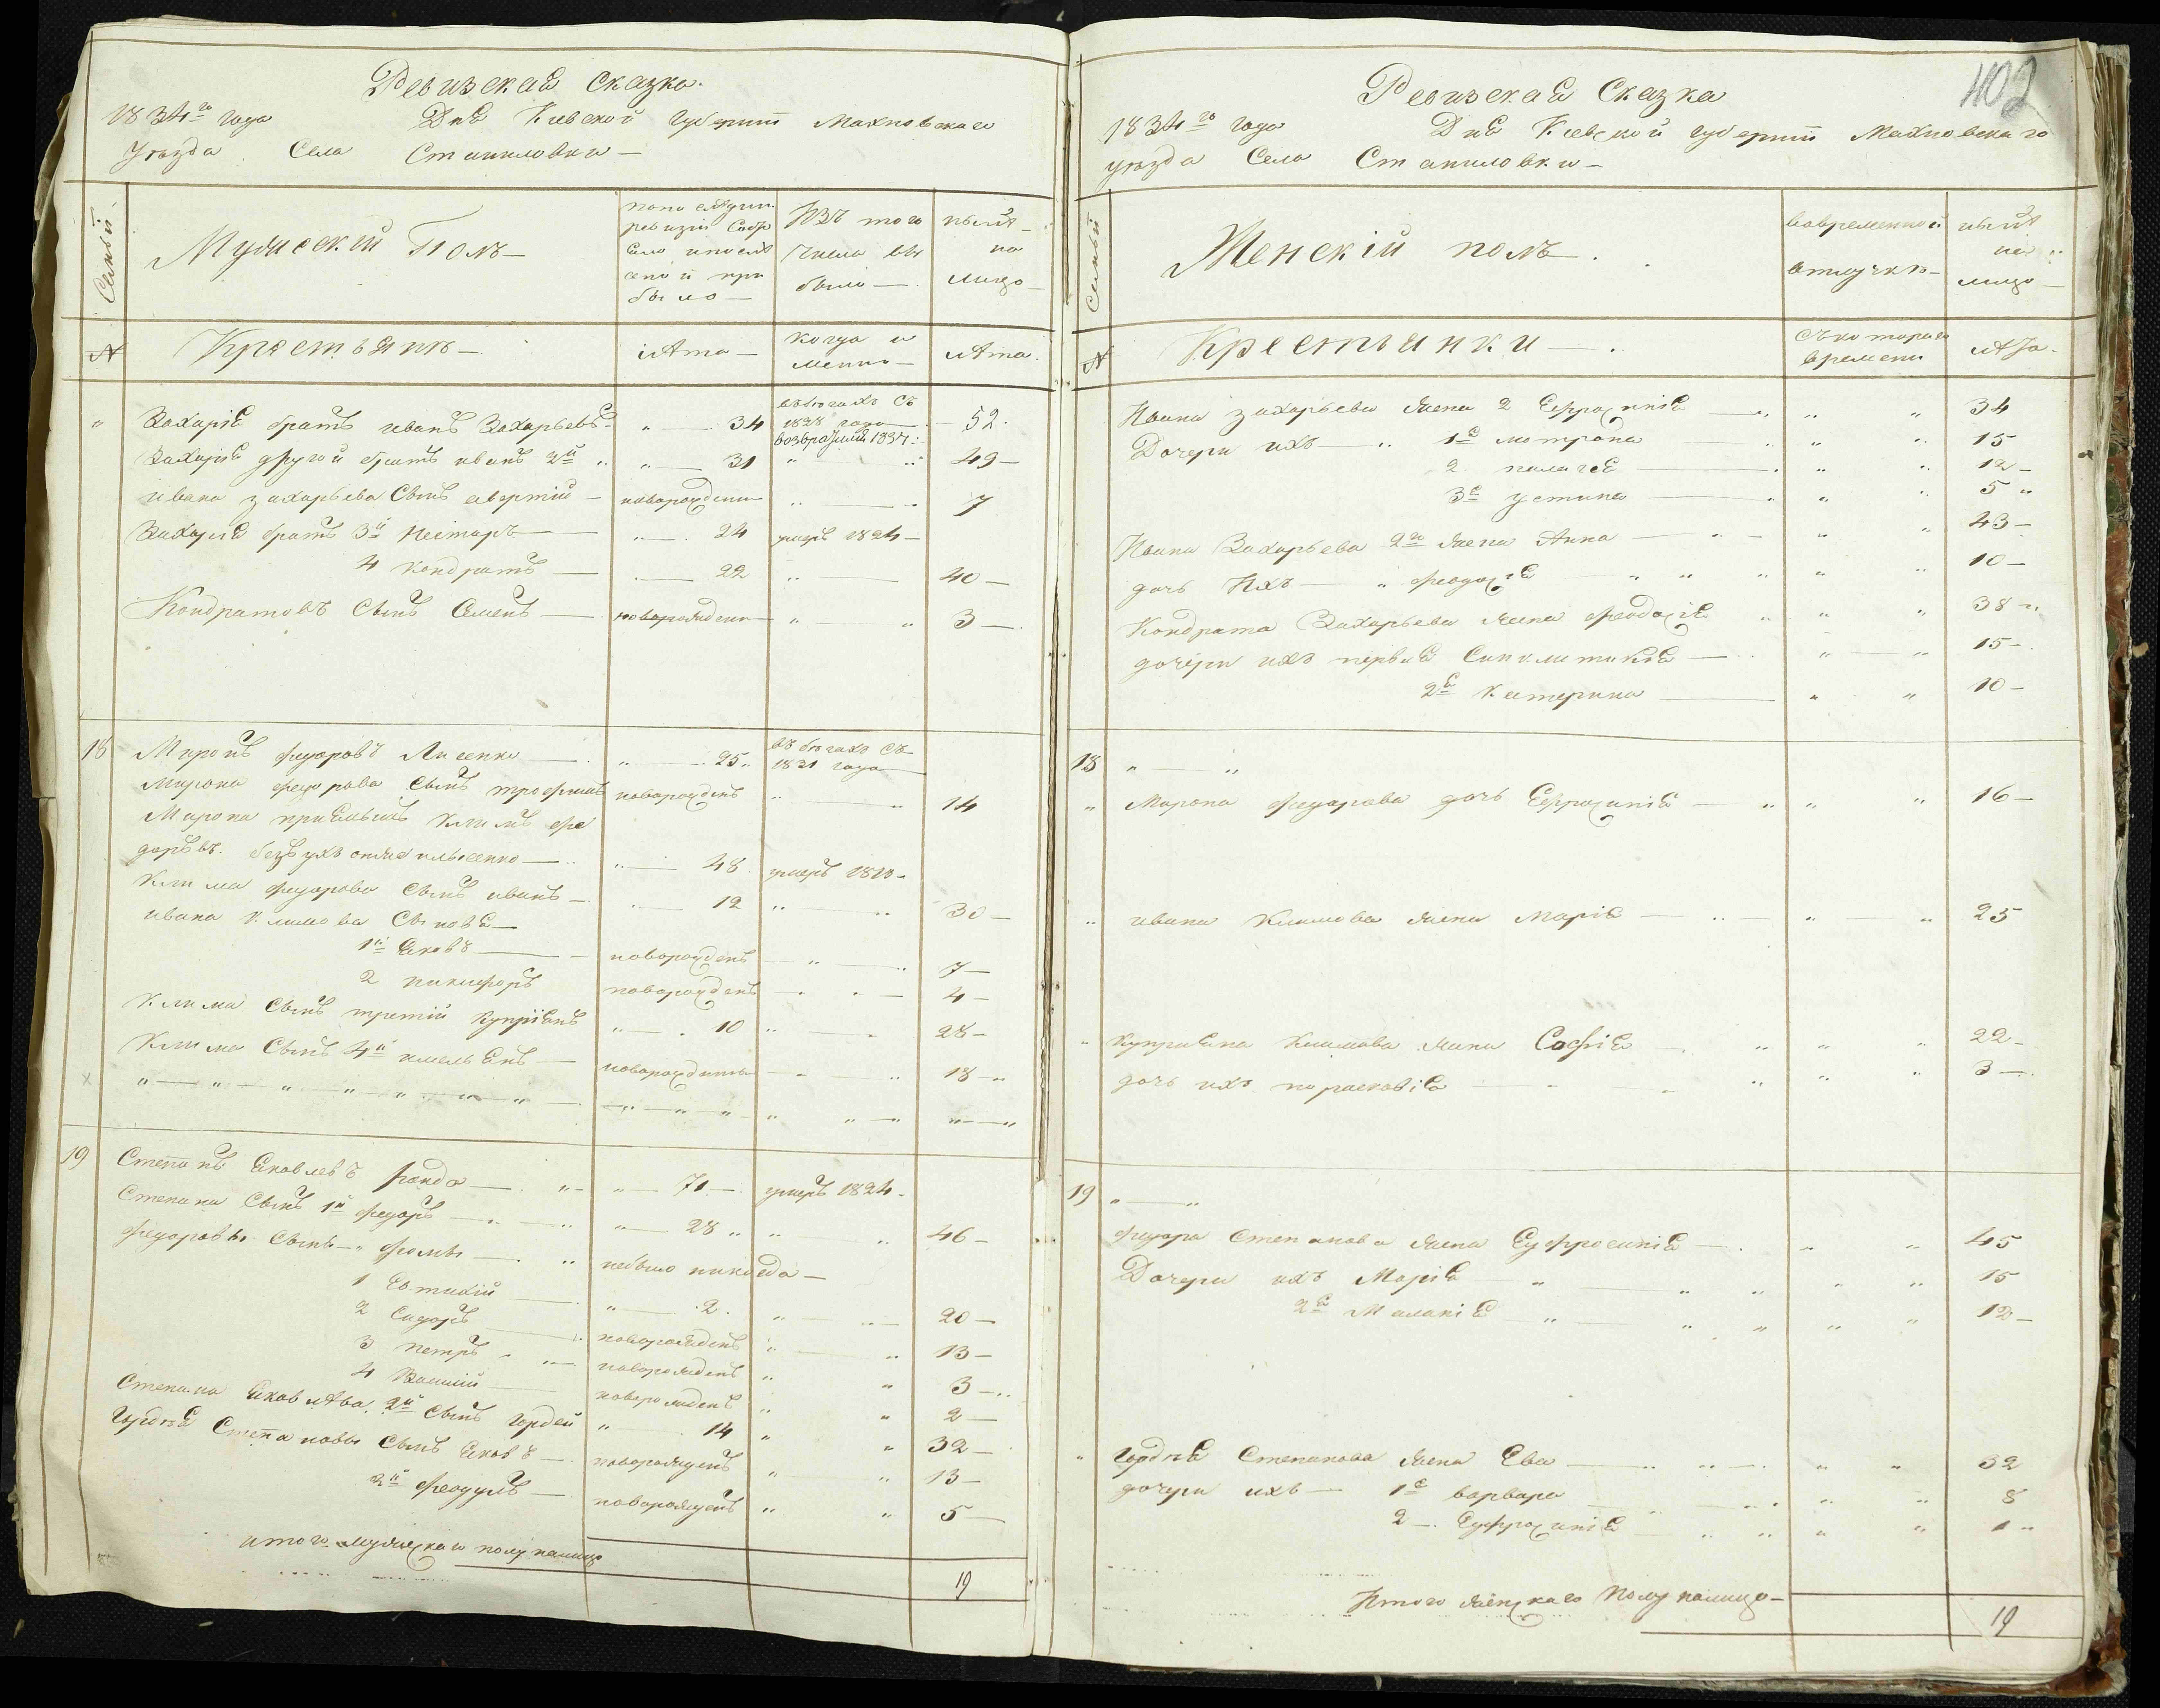 Ревизская Сказка.
1834го года Дня Киевской Губернии Махновскаго
Уезда Села Станиловки —
Семьи
Мужеский Полъ —
по последн. ревизии состояло и после оной прибыло —
Изъ того числа выбыло —
ныне на лицо —
№
Крестьяне —
лета —
когда именно —
лета.
" Захария братъ иванъ Захарьевъ " — 34 въ бегахъ съ 1828 года возвратился 1834: 52.
Захария другой братъ иванъ 2й " " — 31 " " 49 —
ивана захарьева Сынъ аверкий — новорожденн " — " 7
Захария братъ 3й Несторъ — " — 24 умеръ 1824 —
4 Кондратъ — " — 22 " — 40 —
Кондратовъ Сынъ Семенъ — новорожденн — " — " 3 —
18 Миронъ федоровъ Лисенко — " — 25 " въ бегахъ съ 1831 года
Мирона федорова Сынъ трофимъ новорожденъ " — " 14
Мирона приемышъ Климъ фе
доровъ
" — 48 умеръ 1813 —
Клима федорова Сынъ иванъ — " — 12 " — " 30 —
ивана климова Сыновя —
1й Яковъ — новорожденъ — " — 7 —
2 никифоръ новорожденъ — " — 4 —
Клима Сынъ третий Куприянъ " — 10 " — 28 —
Клима Сынъ 4й емельянъ — новорожденъ — " 18 — "
" — " — " — " — " — " — " — " — " — " " — " " — "
19 Степанъ Яковлевъ — " — " — 71 — умеръ 1824 —
Степана Сынъ 1й федоръ — " — " " — 28 " " " 46 —
федоровы Сынъ — " фома — " небыло никогда —
1 Евтихий — " — 2. " — " 20 —
2 Сидоръ — новорожденъ " — " 13 —
3 петръ " " — новорожденъ " " 3 — "
4 Василий — новорожденъ " " 2 —
Степана Яковлева 2й Сынъ Гордей " — 14 " " 32 —
Гордея Степановы Сынъ Яковъ — новорожденъ " " 13 —
2й феодулъ — новорожденъ " " 5 —
итого мужеска полу налицо
19
402
Ревизская Сказка
1834го года Дня Киевской Губернии Махновскаго
уезда Села Станиловки —
Семьи
Женскій полъ — .
во временной отлучке —
ныне на лицо —
№
Крестьянки — .
съ котораго времени
лета.
Ивана захарьева жена 2 Ефросиния — " " " 34
Дочери ихъ — " 1я мотрона " " " 15
2 пелагея — " " 12 —
3я устина — " " " 5 "
Ивана Захарьева 2го жена Анна — " — " " 43 —
дочь Ихъ — " феодосия " " " " " 10 —
Кондрата Захарьева жена феодосия " " " 38 — "
дочери ихъ первая Синклитикия — " — " 15 —
2я Катерина — " " 10 —
18 " — "
" Мирона федорова дочь Ефросиния — " " " 16 —
" ивана Климова жена Мария — " — " — " 25
" Куприяна Климова жена Софія — " " " 22 —
дочь ихъ порасковія — " " " 3 —
19 " — "
федора Степанова жена Еуфросиния — " " 45
Дочери ихъ Мария — " — " " " " 15
2я Малания — " — " " " " 12 —
" Гордея Степанова жена Ева — " " — " " 32
дочери ихъ — 1я варвара — " — " " " 8
2 — Еуфросиния — " " " " 1 "
Итого женскаго полу налицо —
19